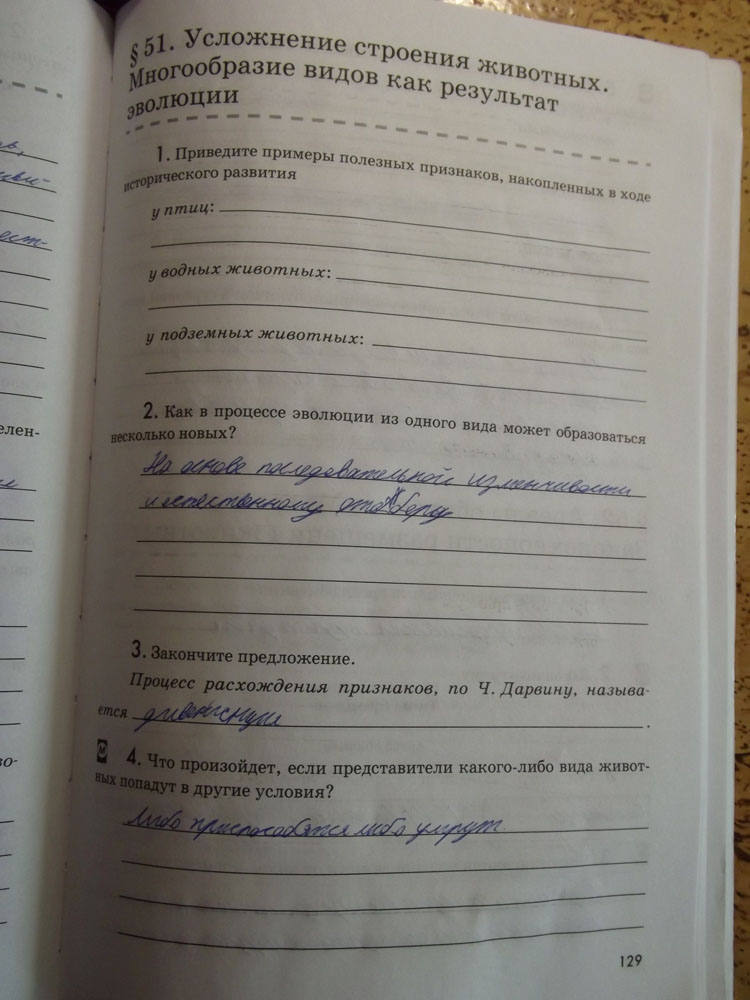 § 51. Усложнение строения животных.
Многообразие видов как результат
эволюции
1. Приведите примеры полезных признаков, накопленных в ходе
исторического развития
у птиц:
у водных животных:
у подземных животных:
2. Как в процессе эволюции из одного вида может образоваться
несколько новых?
На основе последовательной изменчивости
и естественному отбору
3. Закончите предложение.
Процесс расхождения признаков, по Ч. Дарвину, называ-
ется дивергенции .
М 4. Что произойдет, если представители какого-либо вида живот-
ных попадут в другие условия?
Либо приспособятся либо умрут.
129
ест-
елен-
во-